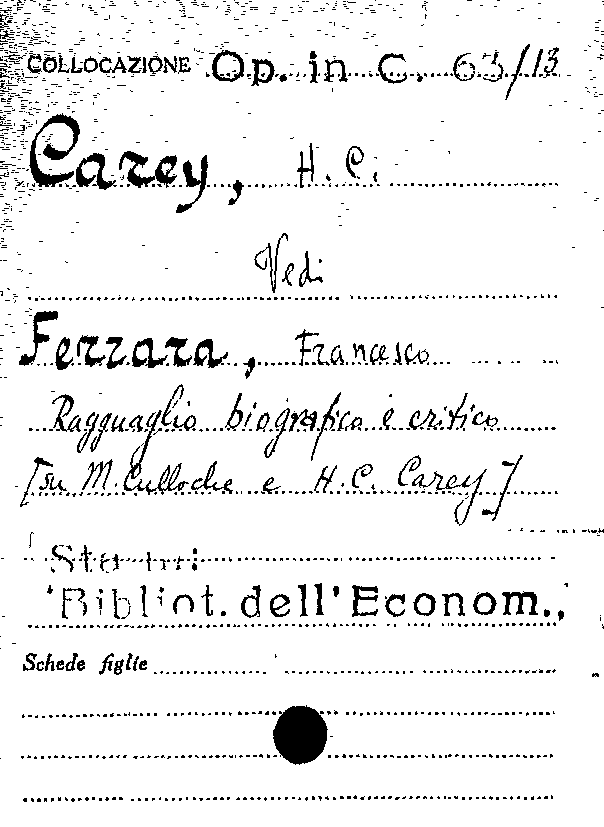 COLLOCAZIONE Op. in C. 63/13
Carey, H. C.
Vedi
Ferrara, Francesco
Ragguaglio biografico e critico
[su M. Culloche e H. C. Carey]
'Bibliot. dell'Econom.,
Schede figlie